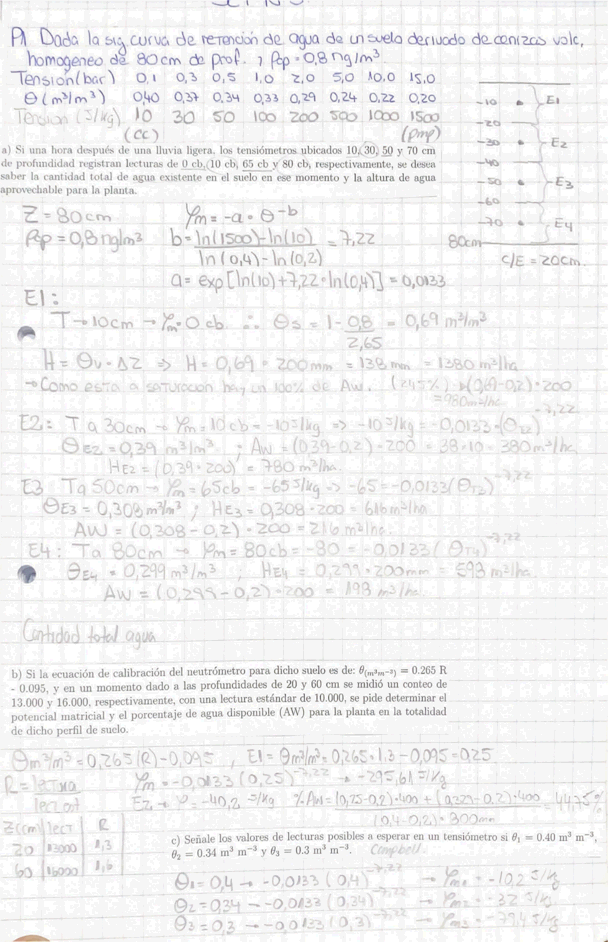 P1 Dada la sig curva de retención de agua de un suelo derivado de cenizas volc,
homogeneo de 80cm de prof. y ρap = 0,8 ng/m³
Tensión (bar) 0,1 0,3 0,5 1,0 2,0 5,0 10,0 15,0
θ (m³/m³) 0,40 0,37 0,34 0,33 0,29 0,24 0,22 0,20
Tension (J/kg) 10 30 50 100 200 500 1000 1500
(CC) (pmp)
-10 E1
-20
-30 E2
-40
-50 E3
-60
-70 E4
80cm
c/E = 20cm.
a) Si una hora después de una lluvia ligera, los tensiómetros ubicados 10, 30, 50 y 70 cm
de profundidad registran lecturas de 0 cb, 10 cb, 65 cb y 80 cb, respectivamente, se desea
saber la cantidad total de agua existente en el suelo en ese momento y la altura de agua
aprovechable para la planta.
Z = 80cm φm = -a · θ^-b
ρap = 0,8 ng/m³ b = ln(1500) - ln(10) / ln(0,4) - ln(0,2) = 7,22
a = exp[ln(10) + 7,22 · ln(0,4)] = 0,0133
E1:
T → 10cm → φm = 0 cb ∴ θs = 1 - 0,8/2,65 = 0,69 m³/m³
H = θv · ΔZ ⇒ H = 0,69 · 200mm = 138 mm = 1380 m³/ha
→ Como esta a saturación hay un 100% de Aw. (245%) (0,69-0,2) · 200
= 980 m³/ha
E2: T a 30cm → φm = 10cb = -10 J/kg ⇒ -10 J/kg = -0,0133 (θT2)^-7,22
θE2 = 0,39 m³/m³ ; AW = (0,39-0,2) · 200 = 38 · 10 = 380 m³/ha
HE2 = (0,39 · 200) = 780 m³/ha.
E3 T a 50cm → φm = 65cb = -65 J/kg ⇒ -65 = -0,0133 (θT3)^-7,22
θE3 = 0,308 m³/m³ ; HE3 = 0,308 · 200 = 616 m³/ha
AW = (0,308 - 0,2) · 200 = 216 m³/ha.
E4: T a 80cm → φm = 80cb = -80 = -0,0133 (θT4)^-7,22
θE4 = 0,299 m³/m³ ; HE4 = 0,299 · 200mm = 593 m³/ha.
AW = (0,299 - 0,2) · 200 = 198 m³/ha.
Cantidad total agua
b) Si la ecuación de calibración del neutrómetro para dicho suelo es de: θ(m³m⁻³) = 0.265 R
- 0.095, y en un momento dado a las profundidades de 20 y 60 cm se midió un conteo de
13.000 y 16.000, respectivamente, con una lectura estándar de 10.000, se pide determinar el
potencial matricial y el porcentaje de agua disponible (AW) para la planta en la totalidad
de dicho perfil de suelo.
θm³/m³ = 0,265 (R) - 0,095 , E1 = θm³/m³ = 0,265 · 1,3 - 0,095 = 0,25
R = lectura φm = -0,0133 (0,25)^-7,22 → -295,61 J/kg
E2 → φ = -40,2 J/kg %AW = (0,25-0,2) · 400 + (0,329-0,2) · 400 = 44,75%
(0,4-0,2) · 800mm
Z(cm) lect R
20 13000 1,3
60 16000 1,6
c) Señale los valores de lecturas posibles a esperar en un tensiómetro si θ₁ = 0.40 m³ m⁻³,
θ₂ = 0.34 m³ m⁻³ y θ₃ = 0.3 m³ m⁻³. Campbell.
θ1 = 0,4 → -0,0133 (0,4)^-7,22 → φm1 = -10,2 J/kg
θ2 = 0,34 → -0,0133 (0,34)^-7,22 → φm2 = -32 J/kg
θ3 = 0,3 → -0,0133 (0,3)^-7,22 → φm3 = -79,4 J/kg